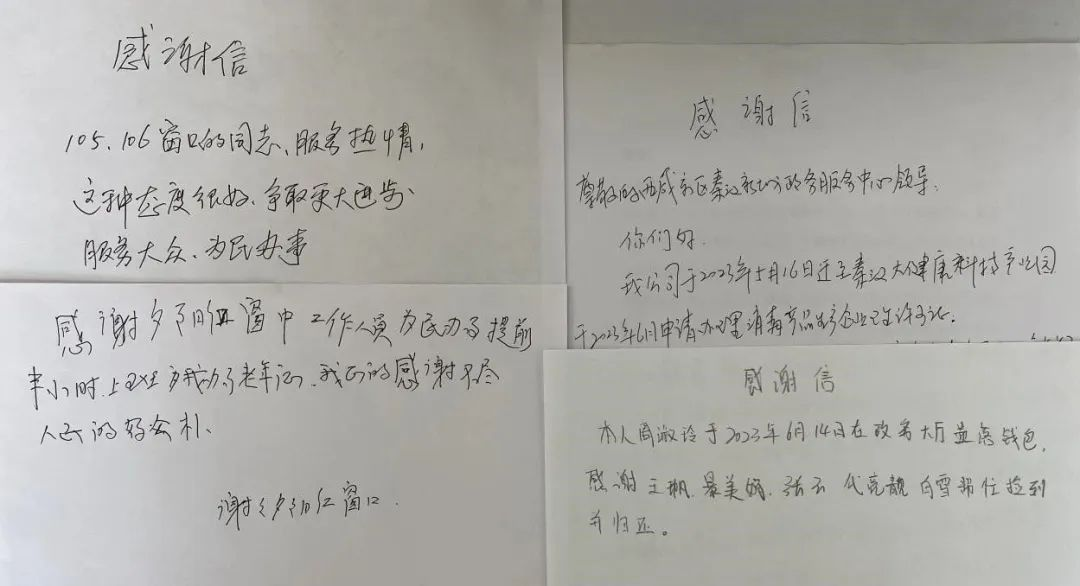 感谢信
105、106窗口的同志、服务热情,
这种态度很好、争取更大进步
服务大众、为民办事
感谢夕阳红窗中工作人员为民办了提前
半小时上班 办了老年证、我们的感谢不尽
人民的好公朴、
谢谢夕阳红窗口.
感谢信
尊敬的西咸新区秦汉新城政务服务中心领导:
你们好.
我公司于2023年5月16日迁至秦汉大健康科技产业园
于2023年6月申请办理消毒产品生产企业卫生许可证.
感谢信
本人周淑玲于2023年6月14日在政务大厅遗落钱包,
感谢王 美娟、张 代 靓 白雪 捡到
并归还。